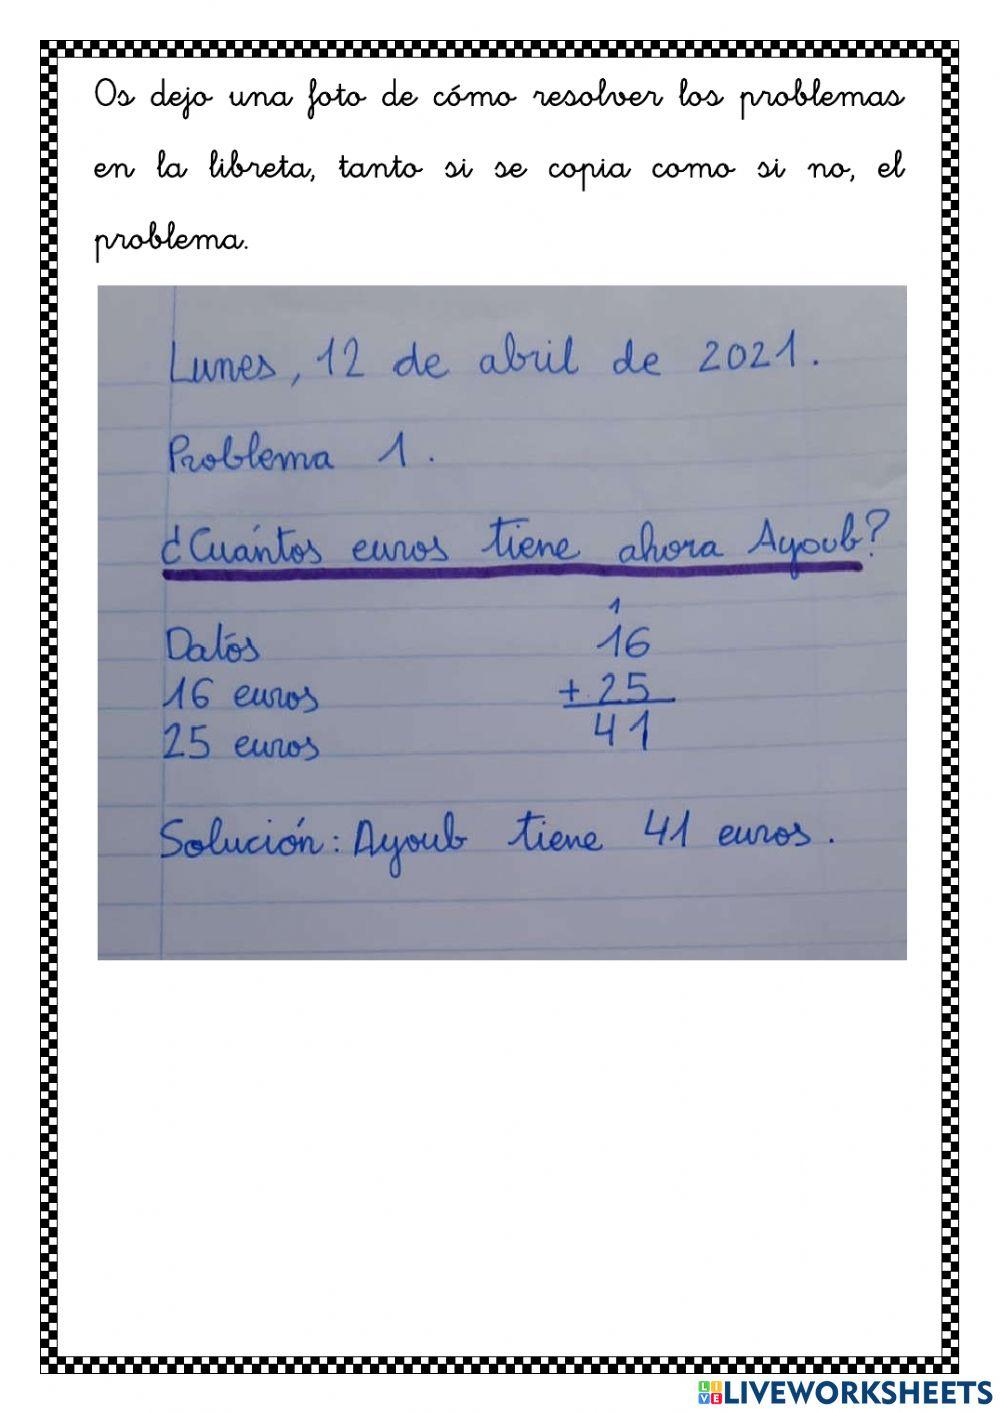 Os dejo una foto de cómo resolver los problemas
en la libreta, tanto si se copia como si no, el
problema.
Lunes, 12 de abril de 2021.
Problema 1.
¿Cuántos euros tiene ahora Ayoub?
Datos
16 euros
25 euros
1
16
+ 25
41
Solución: Ayoub tiene 41 euros.
LIVEWORKSHEETS